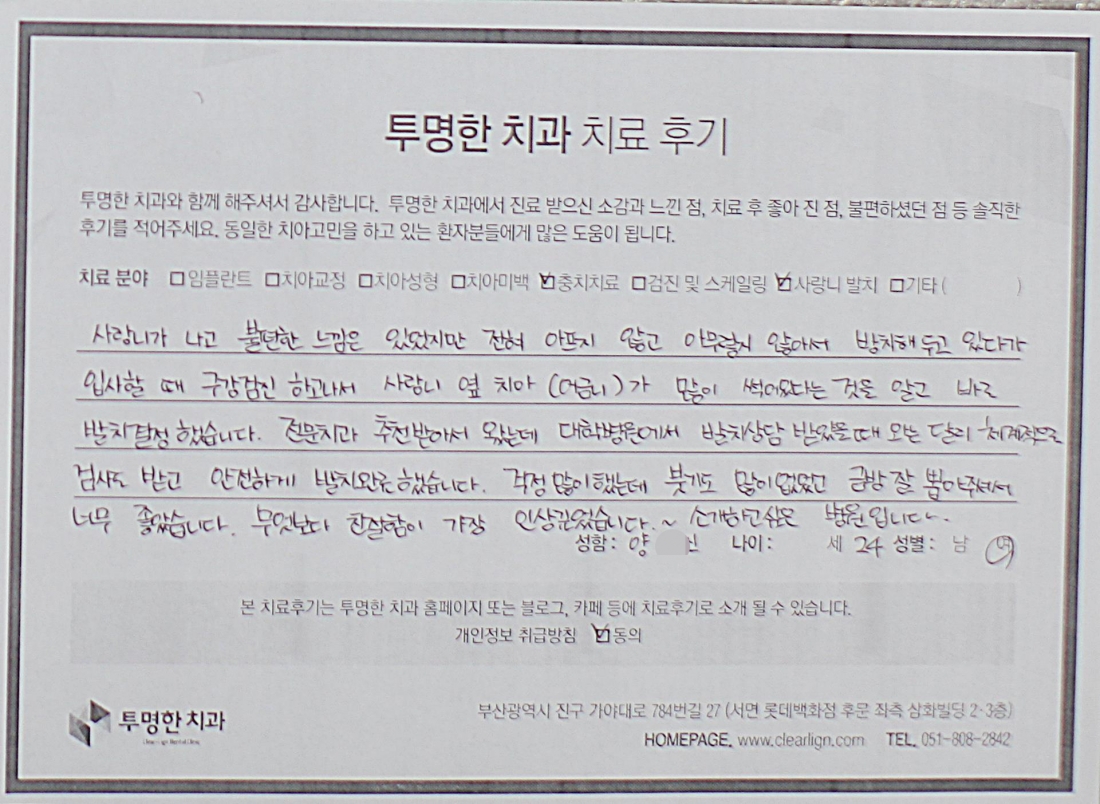 투명한 치과 치료 후기
투명한 치과와 함께 해주셔서 감사합니다. 투명한 치과에서 진료 받으신 소감과 느낀 점, 치료 후 좋아 진 점, 불편하셨던 점 등 솔직한
후기를 적어주세요. 동일한 치아고민을 하고 있는 환자분들에게 많은 도움이 됩니다.
치료 분야 □임플란트 □치아교정 □치아성형 □치아미백 ☑충치치료 □검진 및 스케일링 ☑사랑니 발치 □기타( )
사랑니가 나고 불편한 느낌은 있었지만 전혀 아프지 않고 아무렇지 않아서 방치해 두고 있다가
입사할 때 구강검진 하고나서 사랑니 옆 치아(어금니)가 많이 썩어있다는 것을 알고 바로
발치결정 했습니다. 전문치과 추천받아서 왔는데 대학병원에서 발치상담 받았을때 와는 달리 체계적으로
검사도 받고 안전하게 발치완료했습니다. 걱정많이했는데 붓기도 많이없었고 금방 잘 뽑아주셔서
너무 좋았습니다. 무엇보다 친절함이 가장 인상깊었습니다.~ 소개하고싶은 병원입니다~.
성함: 양 신 나이: 세 24 성별: 남 여
본 치료후기는 투명한 치과 홈페이지 또는 블로그, 카페 등에 치료후기로 소개 될 수 있습니다.
개인정보 취급방침 ☑동의
투명한 치과
부산광역시 진구 가야대로 784번길 27 (서면 롯데백화점 후문 좌측 삼화빌딩 2·3층)
HOMEPAGE. www.clearlign.com TEL. 051-808-2842